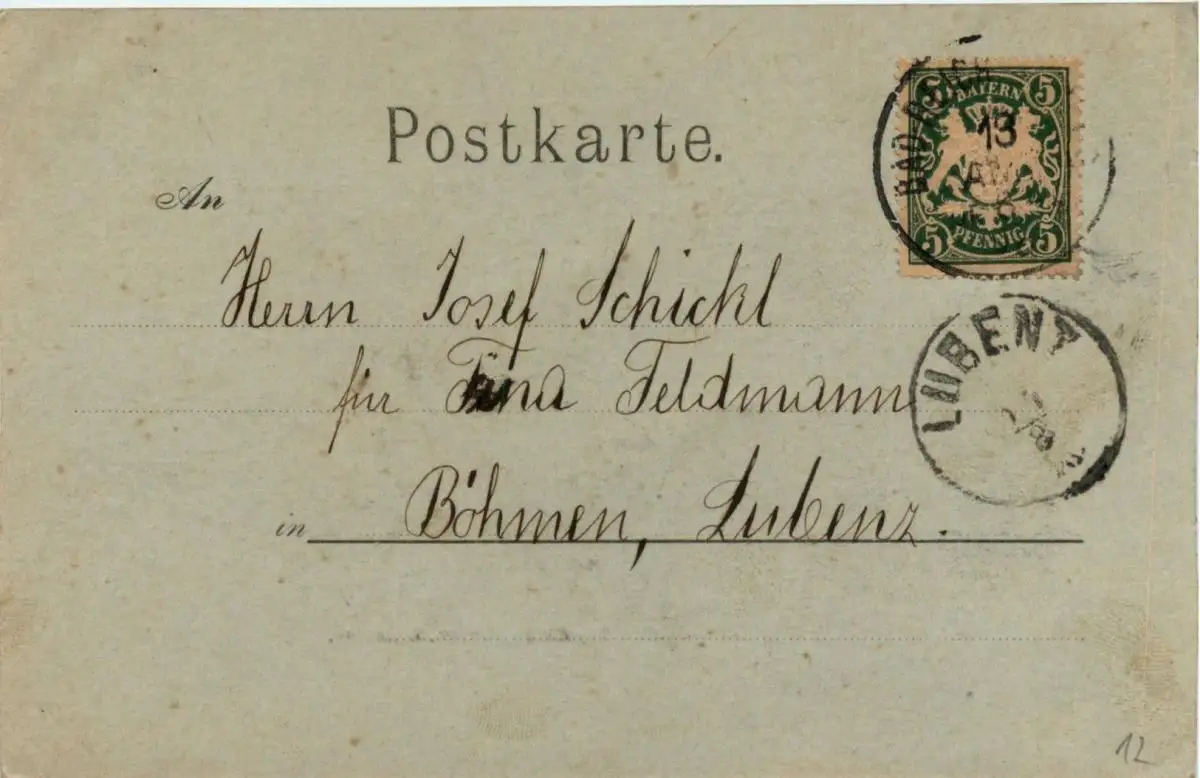 Postkarte.
5 BAYERN 5
BAD
13
5 PFENNIG 5
An
Herrn Josef Schickl
für Tina Feldmann
in Böhmen, Lubenz.
LUBENZ
12